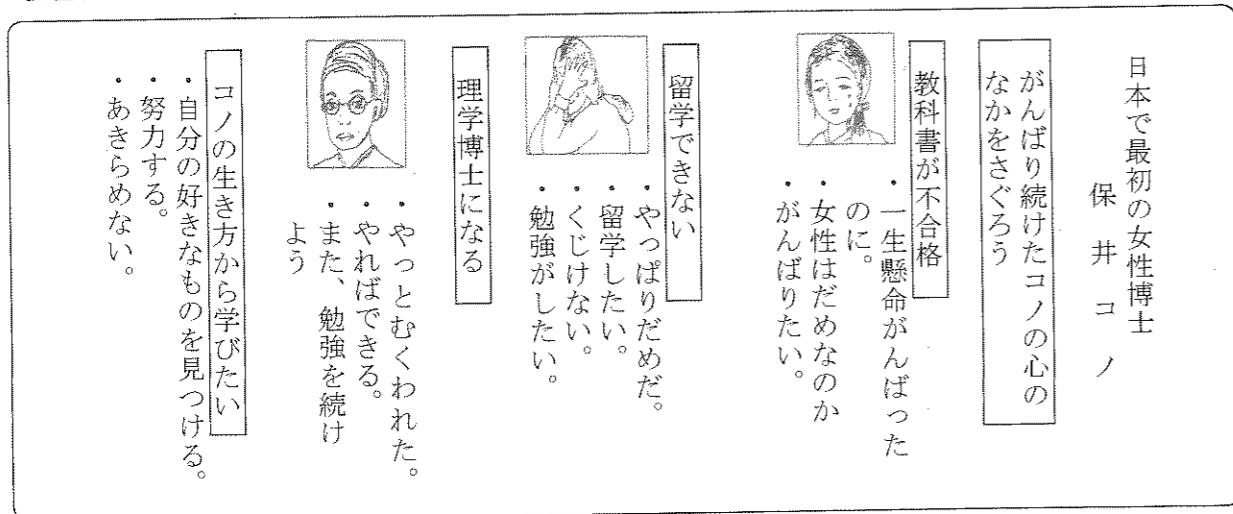 日本で最初の女性博士
保井コノ
がんばり続けたコノの心の
なかをさぐろう
教科書が不合格
・一生懸命がんばった
のに。
・女性はだめなのか
・がんばりたい。
留学できない
・やっぱりだめだ。
・留学したい。
・くじけない。
・勉強がしたい。
理学博士になる
・やっとむくわれた。
・やればできる。
・また、勉強を続け
よう
コノの生き方から学びたい
・自分の好きなものを見つける。
・努力する。
・あきらめない。